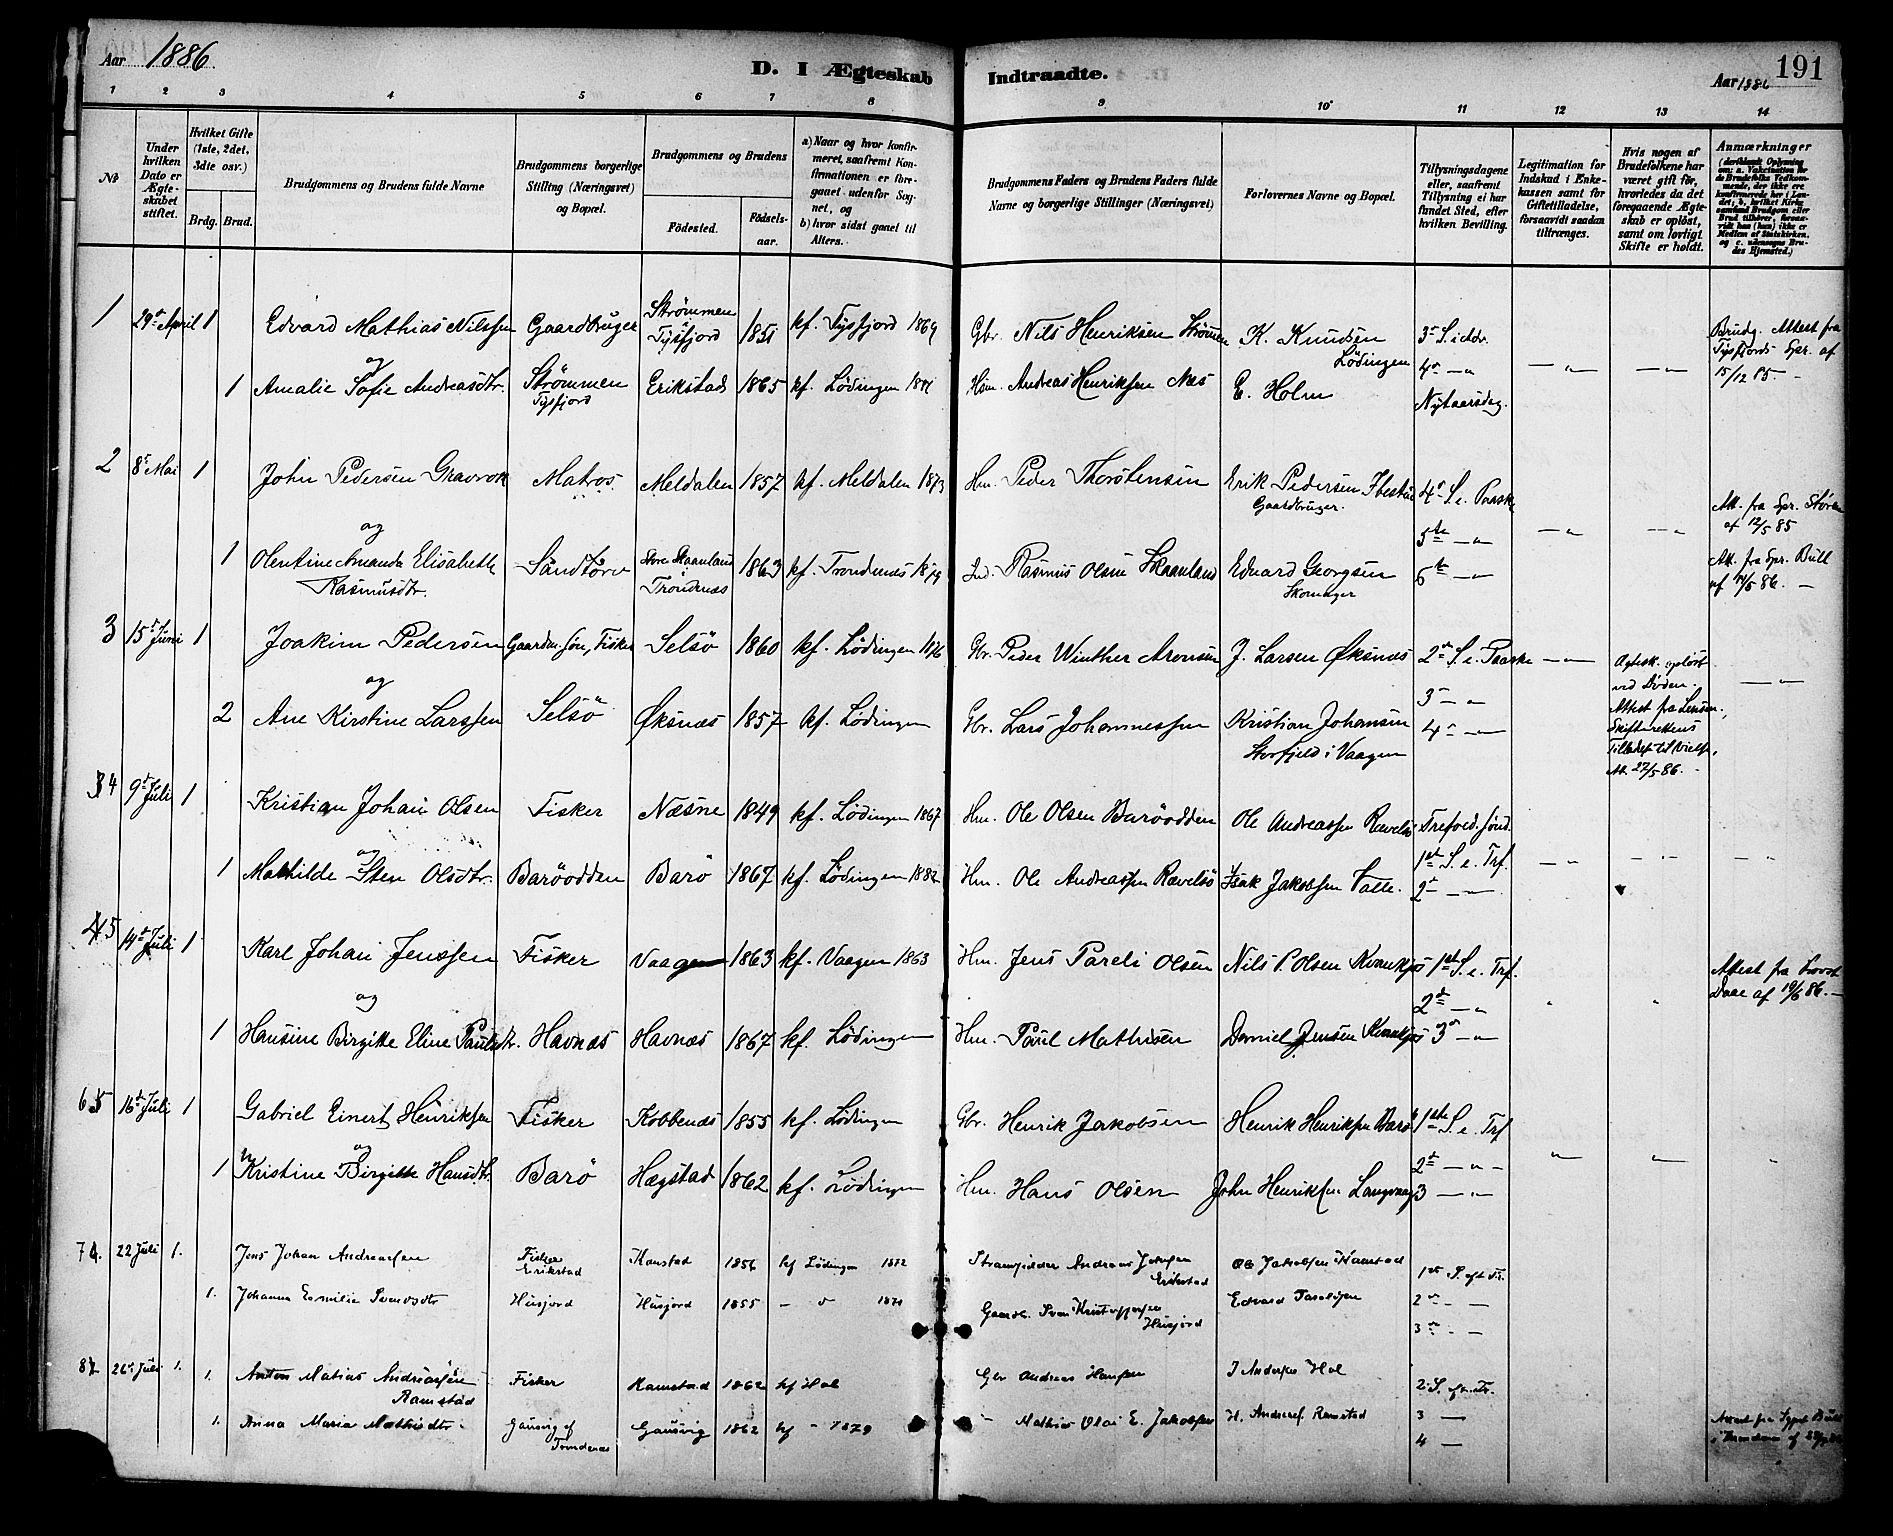 Aar 1886.
D. I Ægteskab
Indtraadte.
Aar 1886
191
1 2 3 4 5 6 7 8 9 10 11 12 13 14
No
Under hvilken Dato er Ægteskabet stiftet.
Hvilket Gifte (1ste, 2det, 3die osv.)
Brdg. Brud.
Brudgommens og Brudens fulde Navne
Brudgommens borgerlige Stilling (Næringsvei) og Bopæl.
Brudgommens og Brudens
Fødested.
Fødselsaar.
a) Naar og hvor konfirmeret, saafremt Konfirmationen er foregaaet udenfor Sognet, og
b) hvor sidst gaaet til Alters.
Brudgommens Faders og Brudens Faders fulde Navne og borgerlige Stillinger (Næringsvei)
Forlovernes Navne og Bopæl.
Tillysningsdagene eller, saafremt Tillysning ei har fundet Sted, efter hvilken Bevilling.
Legitimation for Indskud i Enkekassen samt for Giftetilladelse, forsaavidt saadan tiltrænges.
Hvis nogen af Brudefolkene har været gift før, hvorledes da det foregaaende Ægteskab er opløst, samt om lovligt Skifte er holdt.
Anmærkninger
1 29de April 1 Edvard Mathias Nilssen Gaardbruger Strømmen Tysfjord 1851 kf. Tysfjord 1869 Gbr. Nils Henriksen Strømen K. Knudsen Lødingen 3die S. i Adv. Brudg. Attest fra Tysfjords Spr. af 15/12 85.
og
1 Amalie Sofie Andreasdtr. Strømmen Tysfjord Erikstad 1865 kf. Lødingen Hsm. Andreas Henriksen Næs E. Holm 4de — " Nytaarsdag. — " — — " —
2 8de Mai 1 John Pedersen Gravrok Matros Meldalen 1857 kf. Meldalen 1873 Hm. Peder Thorstensen Erik Pedersen Ibestad Gaardbruger. 4de S. e. Paaske Att. fra Spr. Støren af 12/5 85
og 5te — " — " — — " —
1 Olentine Amanda Elisabeth Rasmusdtr. Sandtorv Store Skaanland Trondenæs 1863 kf. Trondenæs 1879 Ind. Rasmus Olsen Skaanland Edvard Georgsen Skomager 6te — " Att. fra Spr. Bull af 14/5 86.
3 15de Juni 1 Joakim Pedersen Gaardm. Søn, Fisker Selsö 1860 kf. Lödingen 1876 Gbr. Peder Winther Aronsen J. Larsen Øksnæs 2den S. e. Paaske — " — Ægtesk. opløst ved Døden. — " —
og 3die — "
2 Ane Kirstine Larssen Selsö Øksnæs 1857 kf. Lödingen Gbr. Lars Johannessen Kristian Johansen Storfjeld i Vaagen 4de — " Attest fra Lensm., Skifterettens Tilladelse til Vielse, Att. 27/5 86.
4 9de Juli 1 Kristian Johan Olsen Fisker Næsne 1849 kf. Lödingen 1867 Hm. Ole Olsen Baröodden Ole Andreassen Rævelsö Trefold. sønd.
og
1 Mathilde Sten Olsdtr. Baröodden Barö 1867 kf. Lödingen 1882 Hm. Ole Andreassen Rævelsö Isak Jakobsen Valle. 1ste S. e. Trf. 2den — " — — " — — " — — " —
5 14de Juli 1 Karl Johan Jenssen Fisker Vaagen 1863 kf. Vaagen 1863 Hm. Jens Pareli Olsen Nils P. Olsen 1ste S. e. Trf. Attest fra Provst Daae af 19/6 86.
og 2den — "
1 Hansine Birgitte Eline Paulsdtr. Havnæs Havnæs 1867 kf. Lödingen Hm. Paul Mathisen Daniel Jensen 3die — "
6 16de Juli 1 Gabriel Einert Henriksen Fisker Kobbenæs 1855 kf. Lödingen Gbr. Henrik Jakobsen Henrik Henriksen Barö 1ste S. e. Trf
og 2den — " — " — — " —
1 Kristine Birgitte Hansdtr. Barö Hægstad 1862 kf. Lödingen Hm. Hans Olsen John Henriksen Langvaag 3 — "
7 22 Juli 1. Jens Johan Andreassen Fisker Erikstad Kanstad 1856 kf Lödingen 1872 Andreas Jensen Erikstad Ole Jakobsen Kanstad 1ste S. eft Tr.
1. Johanna Emilie Svendsdtr Husjord Husjord 1855 — " 1871 Gaardb. Sven Kristoffersen Husjord Edvard 2den — " — 3die — " —
8 26de Juli 1. 1. Anton Matias Andreassen Ramstad Fisker Ramstad 1862 kf Hol Gbr Andreas Hansen J Andersen Hol 2 S. eft. Tr.
1. Anna Maria Mathisdtr Gausvig af Trondenæs Gausvig 1862 kf — " 1879 — Mathias Olai E. Jakobsen H. Andreas. Ramstad 3 — 4 — Attest fra Sgpr. Bull